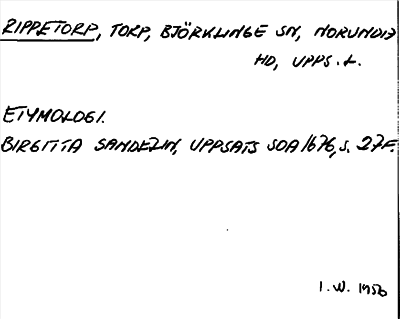 RIPPETORP, TORP, BJÖRKLINGE SN, NORUNDA
HD, UPPS. L.
ETYMOLOGI.
BIRGITTA SANDELIN, UPPSATS SOA 1676, S. 27 F.
I. W. 1956